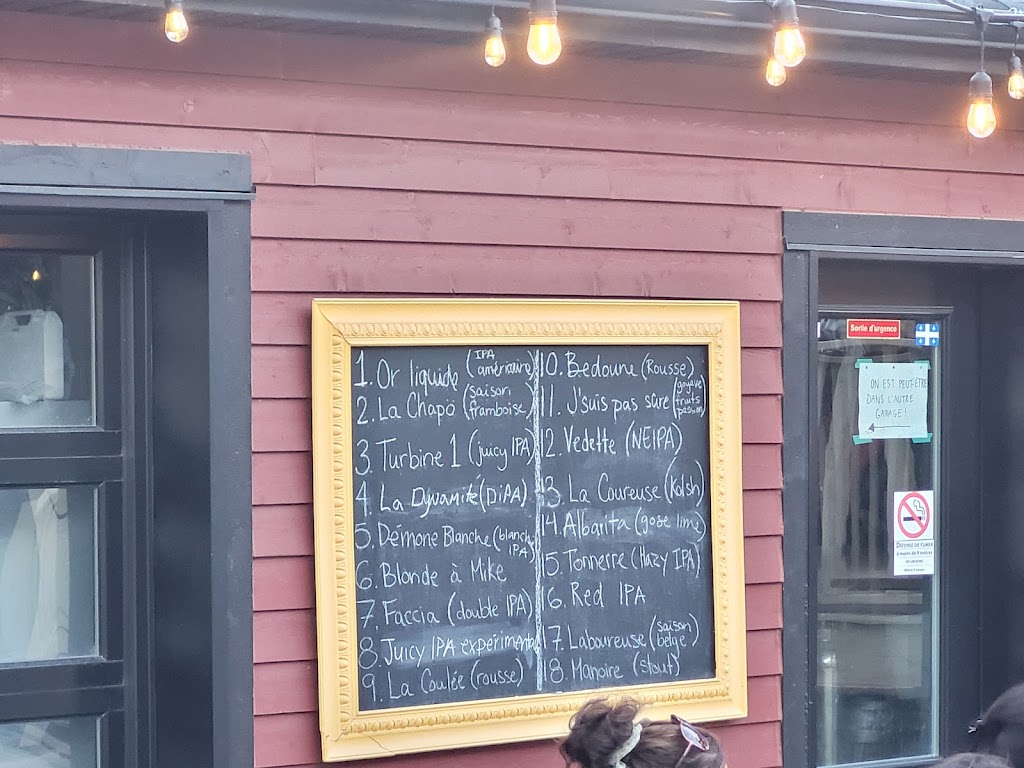 1. Or liquide (IPA américaine)
2. La Chapö (saison framboise)
3. Turbine 1 (juicy IPA)
4. La Dynamite (DiPA)
5. Démone Blanche (blanche IPA)
6. Blonde à Mike
7. Faccia (double IPA)
8. Juicy IPA expérimentale
9. La Coulée (rousse)
10. Bedoune (Rousse)
11. J'suis pas sûre (goyave fruits passion)
12. Vedette (NEIPA)
13. La Coureuse (Kolsh)
14. Albarita (gose lime)
15. Tonnerre (Hazy IPA)
16. Red IPA
17. Laboureuse (saison belge)
18. Manoire (stout)
Sortie d'urgence
ON EST PEUT-ÊTRE
DANS L'AUTRE
GARAGE!
DÉFENSE DE FUMER
à moins de 9 mètres